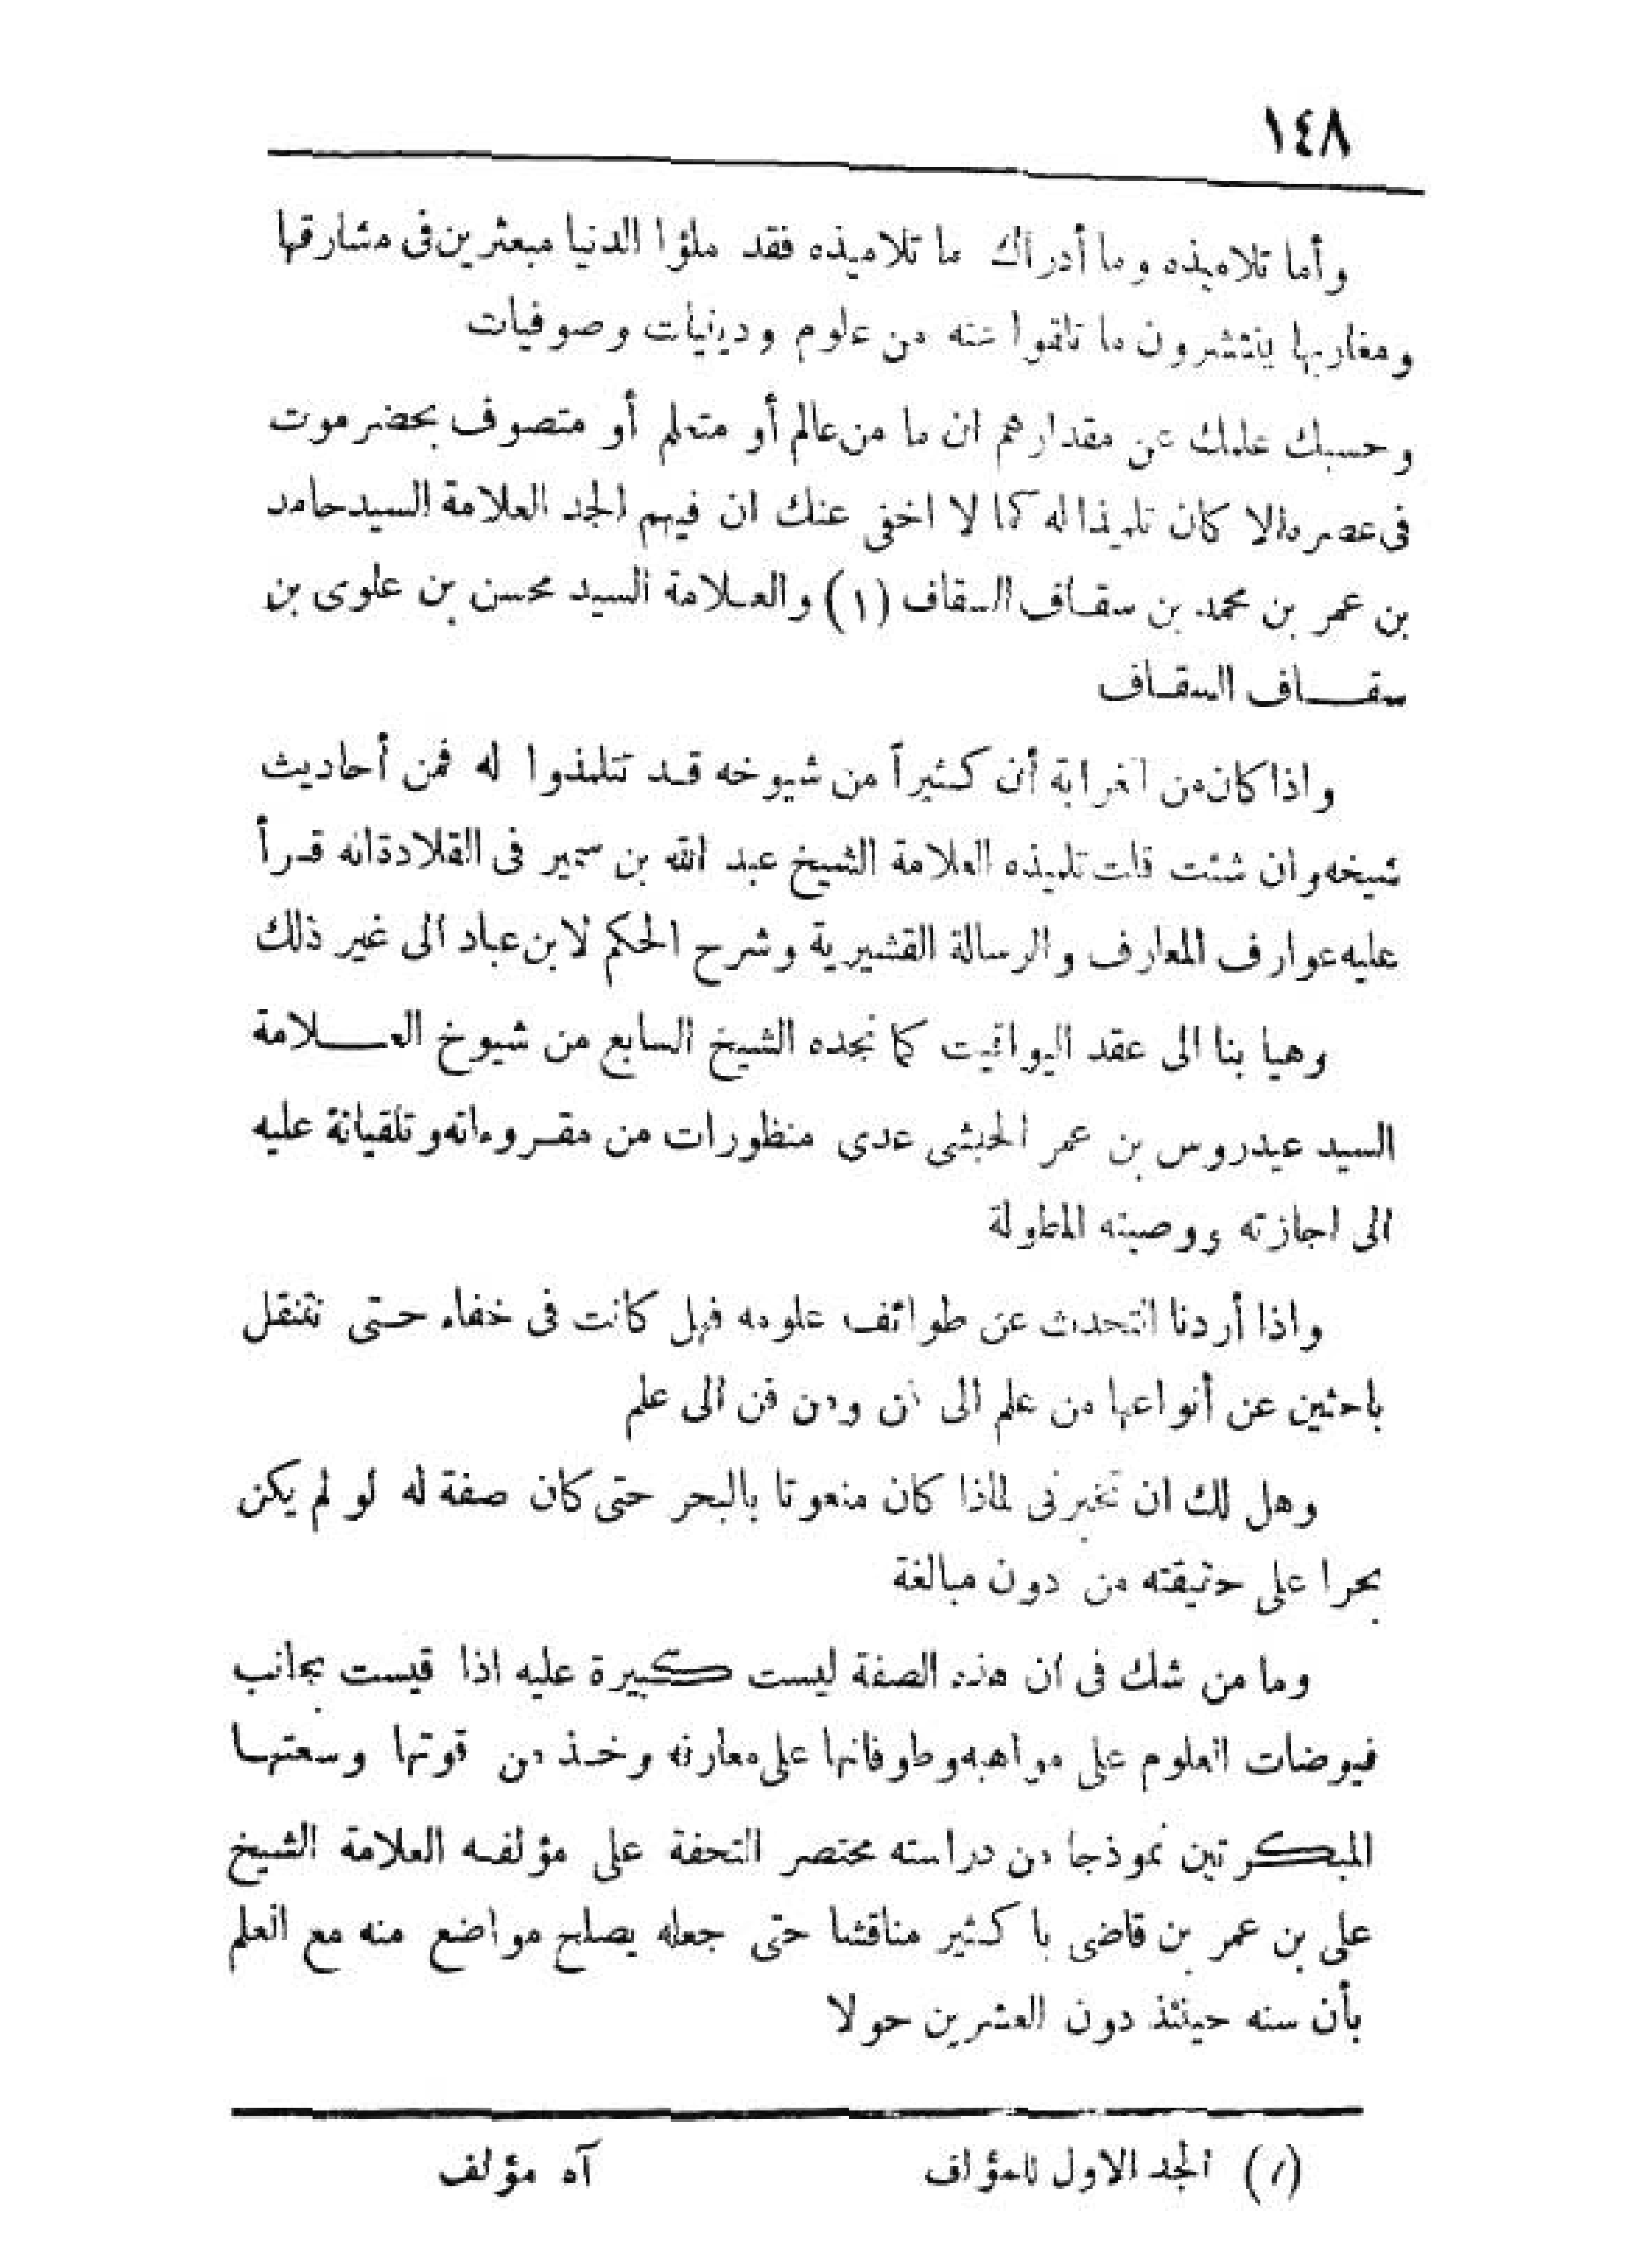 ١٤٨
وأما تلاميذه وما أدراك ما تلاميذه فقد ملؤا الدنيا مبعثرين فى مشارقها
ومغاربها ينتشرون ما تلقوا عنه من علوم ودينيات وصوفيات
وحسبك علمك عن مقدارهم ان ما من عالم أو متعلم أو متصوف بحضرموت
فى عصره الا كان تلميذا له كما لا اخفى عنك ان فيهم الجد العلامة السيد حامد
بن عمر بن محمد بن سقاف السقاف (١) والعلامة السيد محسن بن علوى بن
سقاف السقاف
واذا كان من الغرابة أن كثيراً من شيوخه قد تتلمذوا له فمن أحاديث
شيخه وان شئت قلت تلميذه العلامة الشيخ عبد الله بن سمير فى القلادة انه قرأ
عليه عوارف المعارف والرسالة القشيرية وشرح الحكم لابن عباد الى غير ذلك
وهيا بنا الى عقد اليواقيت كما نجده الشيخ السابع من شيوخ العلامة
السيد عيدروس بن عمر الحبشى عدى منظورات من مقروءاته وتلقياتة عليه
الى اجازته ووصيته المطولة
واذا أردنا التحدث عن طوائف علومه فهل كانت فى خفاء حتى نتنقل
باحثين عن أنواعها من علم الى فن ومن فن الى علم
وهل لك ان تخبرنى لماذا كان منعوتا بالبحر حتى كان صفة له لو لم يكن
بحرا على حقيقته من دون مبالغة
وما من شك فى ان هذه الصفة ليست كبيرة عليه اذا قيست بجانب
فيوضات العلوم على مواهبه وطوفانها على معارفه وخذ من قوتها وسعتها
المبكرتين نموذجا من دراسته مختصر التحفة على مؤلفه العلامة الشيخ
على بن عمر بن قاضى با كثير مناقشا حتى جعله يصلح مواضع منه مع العلم
بأن سنه حينئذ دون العشرين حولا
(١) الجد الاول للمؤلف آه مؤلف